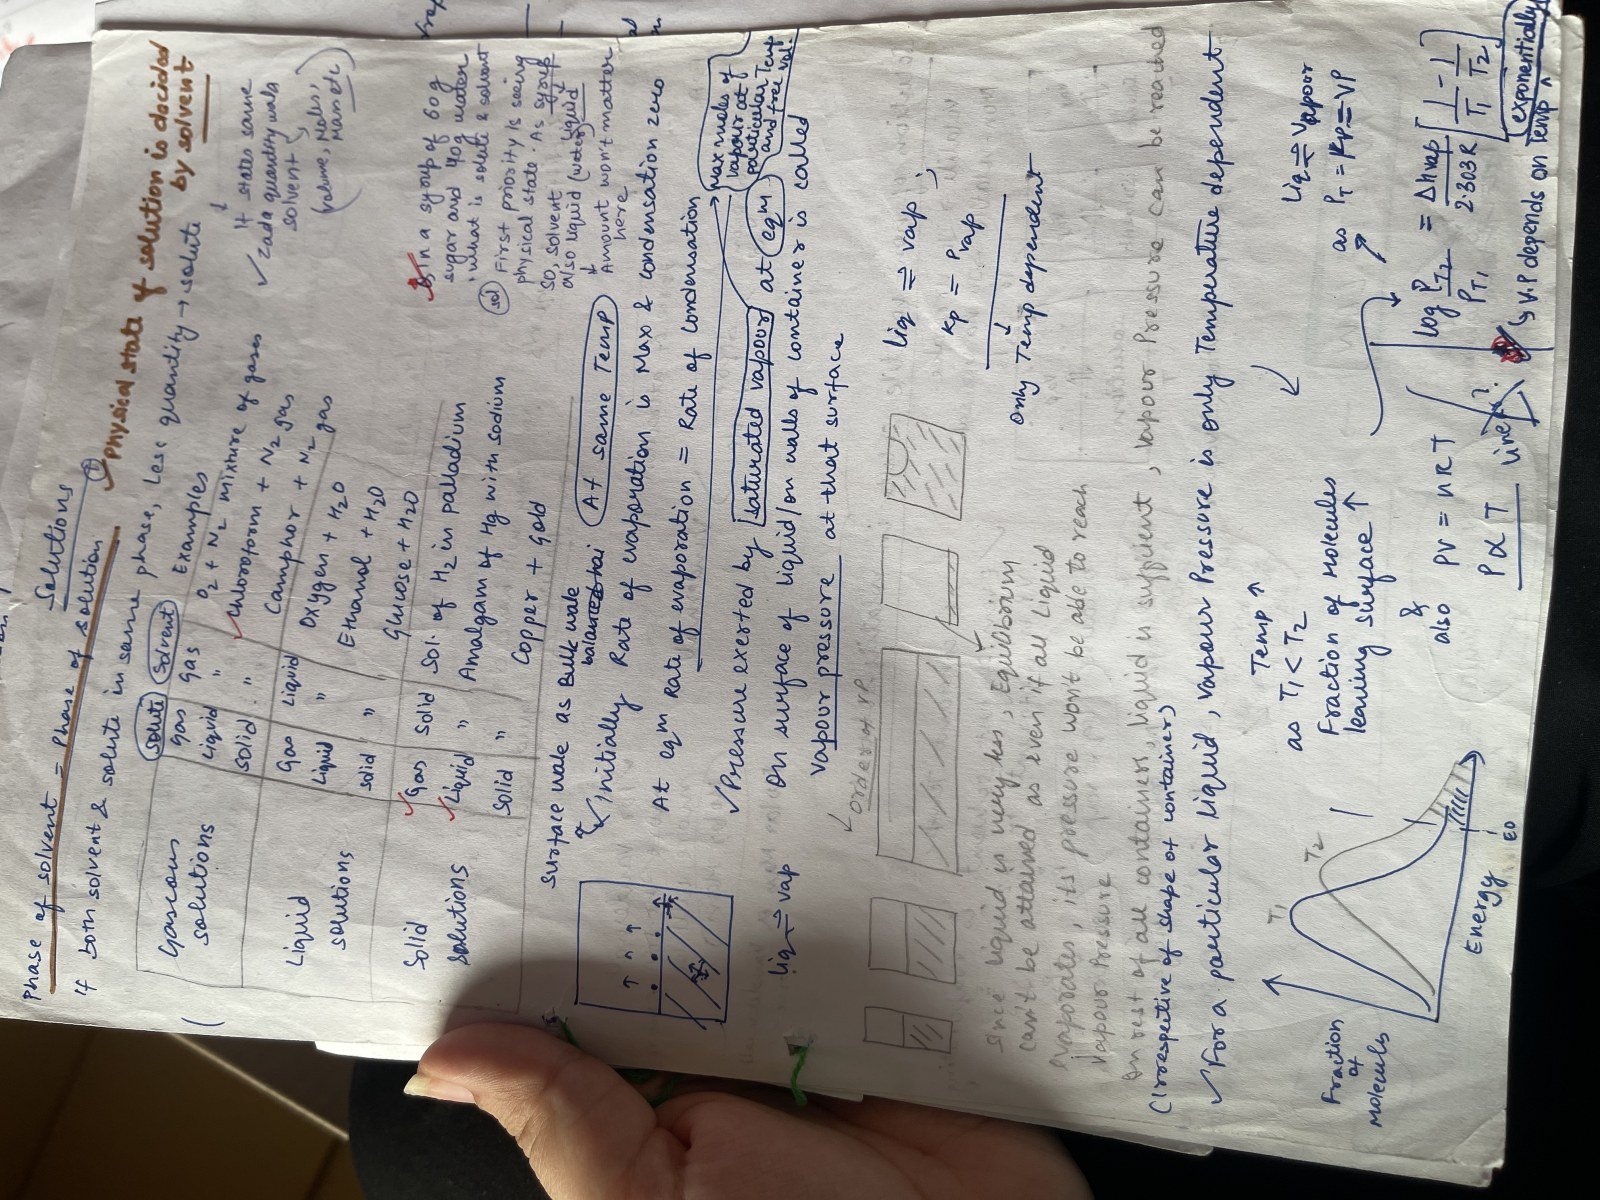 Solutions
Phase of solvent = Phase of solution
① Physical state of solution is decided
by solvent
If both solvent & solute in same phase, Less quantity → solute
If states same
✓ zada quantity wala
solvent
(volume, Moles,
Mann etc)
Solute Solvent Examples
Gaseous solutions
Gas Gas O2 + N2 mixture of gases
Liquid " Chloroform + N2 gas
Solid " Camphor + N2 gas
Liquid solutions
Gas Liquid Oxygen + H2O
Liquid " Ethanol + H2O
Solid " Glucose + H2O
Solid solutions
Gas Solid Sol. of H2 in palladium
Liquid " Amalgam of Hg with sodium
Solid " Copper + Gold
In a syrup of 60g
sugar and 40g water
what is solute & solvent
sol First priority is seeing
physical state. As syrup
liquid
so, solvent
also liquid (water)
Amount won't matter
here
Surface wale as Bulk wale
balanced hai
At same Temp
✓ Initially Rate of evaporation is Max & condensation zero
At eqm Rate of evaporation = Rate of Condensation
Max moles of
vapour at
particular Temp
and free vol.
✓ Pressure exerted by saturated vapour at eqm
on surface of liquid/on walls of container is called
vapour pressure at that surface
Liq ⇌ vap
order of VP
Liq ⇌ vap ;
Kp = Pvap
only Temp dependent
Since liquid is very less, Equilibrium
can't be attained as even if all liquid
evaporates, its pressure won't be able to reach
Vapour Pressure
In rest of all containers, liquid is suffient, Vapour Pressure can be reached
(Irrespective of shape of container)
✓ For a particular liquid, Vapour Pressure is only Temperature dependent
Temp ↑
as T1 < T2
Fraction of molecules
leaving surface ↑
Fraction
of
Molecules
T1
T2
Energy
E0
&
also PV = nRT
P ∝ T
Linear?
Liq ⇌ Vapor
as PT = Kp = VP
log PT2/PT1 = ΔHvap/2.303R [1/T1 - 1/T2]
↳ V.P depends on Temp ^ exponentially